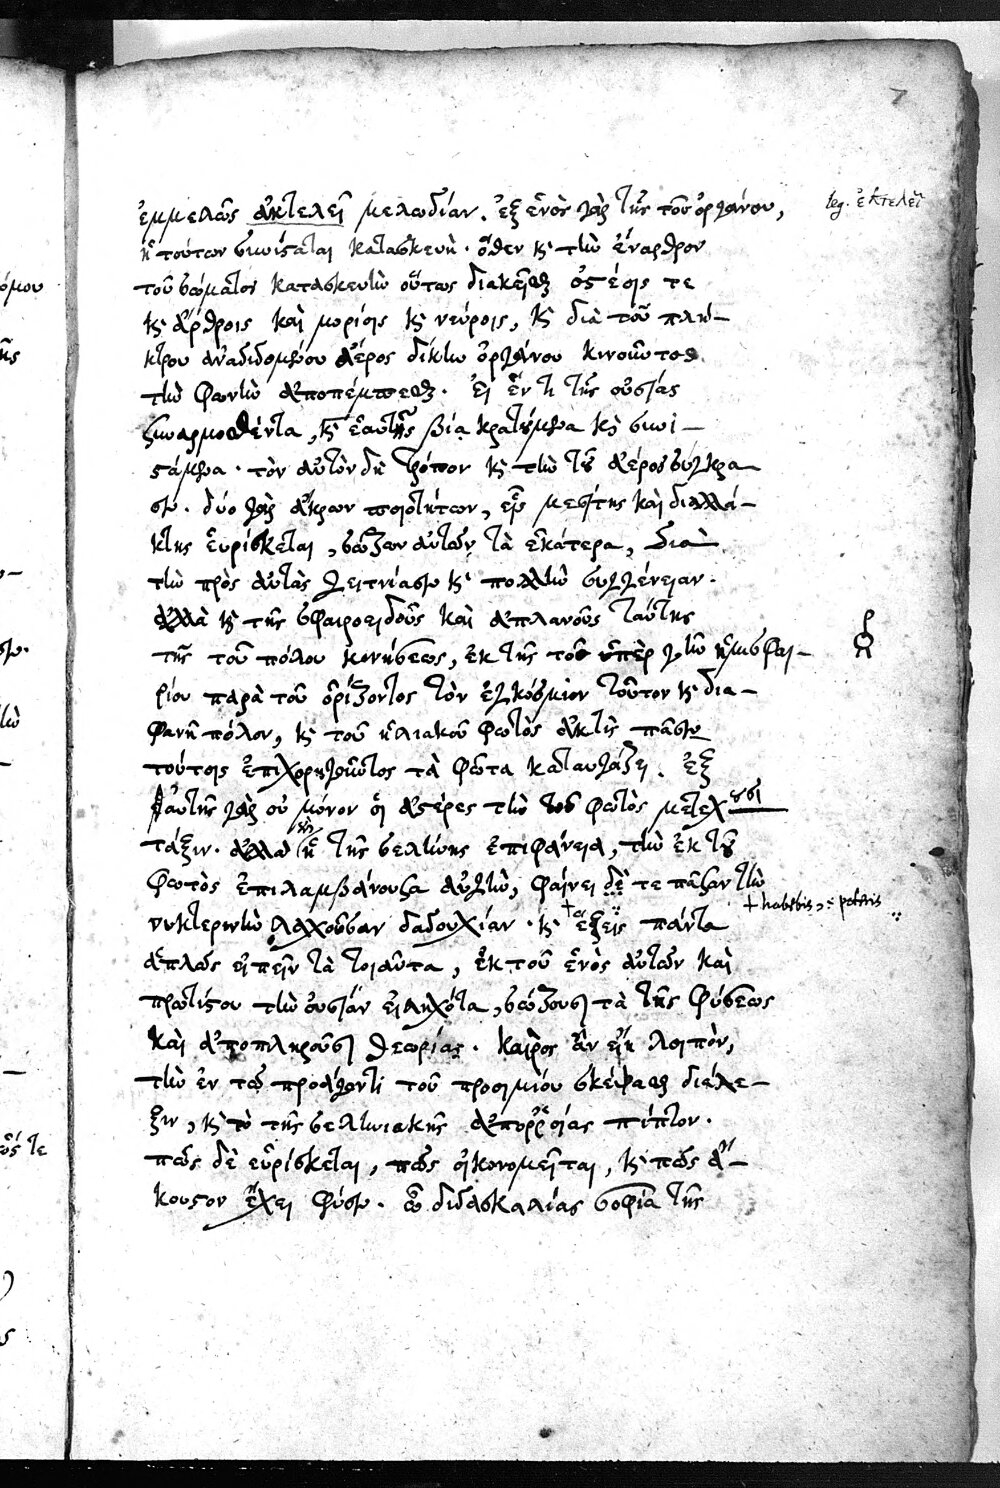 7
ἐμμελῶς ἀκτελεῖ μελωδίαν. ἐξ ἑνὸς γὰρ τῆς τοῦ ὀργάνου,
leg. ἐκτελεῖ
ἡ τούτων συνίσταται κατασκευή. ὅθεν καὶ τὴν ἔναρθρον
τοῦ σώματος κατασκευὴν οὕτως διακεῖσθαι ὀστέοις τε
καὶ ἄρθροις καὶ μορίοις καὶ νεύροις, καὶ διὰ τοῦ πλή-
κτρου ἀναδιδομένου ἀέρος δίκην ὀργάνου κινοῦντος
τὴν φωνὴν ἀποπέμπεσθαι. εἰ ἕν τι τῆς οὐσίας
συναρμοσθέντα, καὶ ἑαυτῆς βία κρατούμενα καὶ συνι-
στάμενα. τὸν αὐτὸν δὴ τρόπον καὶ τὴν τοῦ ἀέρος σύγκρα
σιν. δύο γὰρ ἄκρων ποιοτήτων, μεσίτης καὶ διαλλά-
κτης εὑρίσκεται, σώζων αὐτῶν τὰ ἑκάτερα, διὰ
τὴν πρὸς αὐτὰς γειτνίασιν καὶ πολλὴν συγγένειαν.
ἀλλὰ καὶ τῆς σφαιροειδοῦς καὶ ἀπλανοῦς ταύτης
τῆς τοῦ πόλου κινήσεως, ἐκ τῆς τοῦ ὑπὲρ γῆν ἡμισφαι-
ρίου παρὰ τοῦ ὁρίζοντος τὸν ἐγκόσμιον τοῦτον καὶ δια-
φανῆ πόλον, καὶ τοῦ ἡλιακοῦ φωτὸς ἀκτὶς πᾶσιν
τούτοις ἐπιχορηγοῦντος τὰ φῶτα καταυγάζει. ἐξ
αὐτῆς γὰρ οὐ μόνον οἱ ἀστέρες τὴν τοῦ φωτὸς μετέχουσι
τάξιν. ἀλλὰ καὶ ἡ τῆς σελήνης ἐπιφάνεια, τὴν ἐκ τοῦ
φωτὸς ἐπιλαμβάνουσα αὐγὴν, φαίνει δέ τε πᾶσαν τὴν
νυκτερινὴν λαχοῦσαν δαδουχίαν. καὶ + ἕξεις πάντα
+ habebis,
ἁπλῶς εἰπεῖν τὰ τοιαῦτα, ἐκ τοῦ ἑνὸς αὐτῶν καὶ
πρωτίστου τὴν οὐσίαν εἰληχότα, σώζουσι τὰ τῆς φύσεως
καὶ ἀποπληροῦσι θεωρίας. καιρὸς ἂν εἴη λοιπὸν,
τὴν ἐν τῷ προάγοντι τοῦ προοιμίου σκέψασθαι διέλε-
ξιν, καὶ τὸ τῆς σεληνιακῆς ἀπορροίας πίπτον.
πῶς δὲ εὑρίσκεται, πῶς οἰκονομεῖται, καὶ πῶς ἄ-
καυστον ἔχει φύσιν. ὦ διδασκαλίας σοφία τῆς